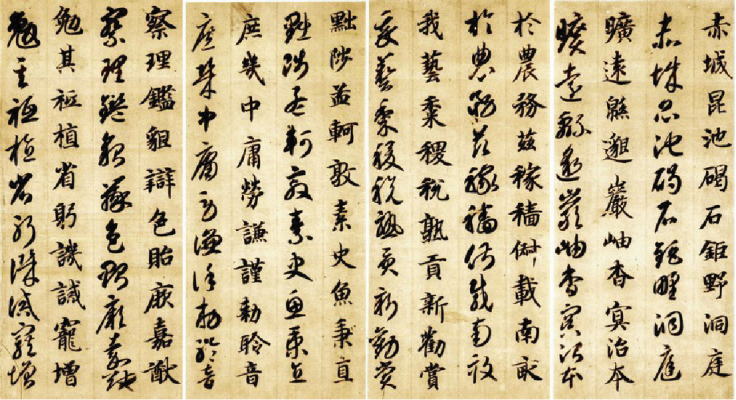 赤城昆池碣石鉅野洞庭
赤城昆池碣石鉅野洞庭
曠遠緜邈巖岫杳冥治本
曠遠緜邈巖岫杳冥治本
於農務茲稼穡俶載南畝
於農務茲稼穡俶載南畝
我藝黍稷稅熟貢新勸賞
我藝黍稷稅熟貢新勸賞
黜陟孟軻敦素史魚秉直
黜陟孟軻敦素史魚秉直
庶幾中庸勞謙謹勅聆音
庶幾中庸勞謙謹勅聆音
察理鑑貌辯色貽厥嘉猷
察理鑑貌辯色貽厥嘉猷
勉其祗植省躬譏誡寵增
勉其祗植省躬譏誡寵增